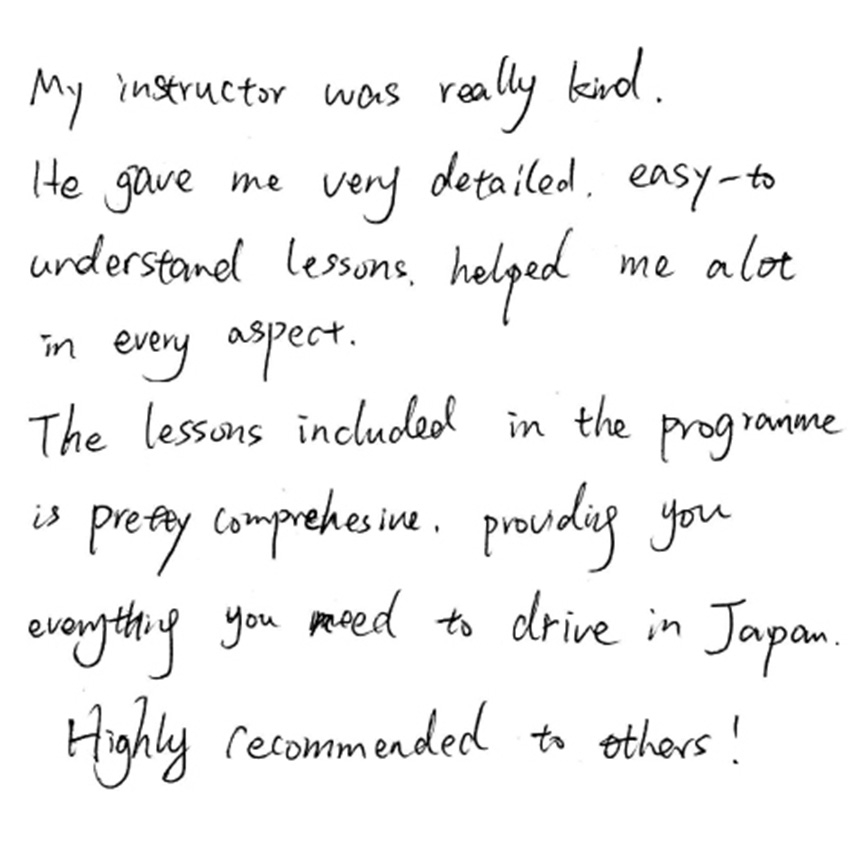 My instructor was really kind.
He gave me very detailed, easy-to
understand lessons, helped me alot
in every aspect.
The lessons included in the programme
is pretty comprehesive, providing you
everything you need to drive in Japan.
Highly recommended to others!